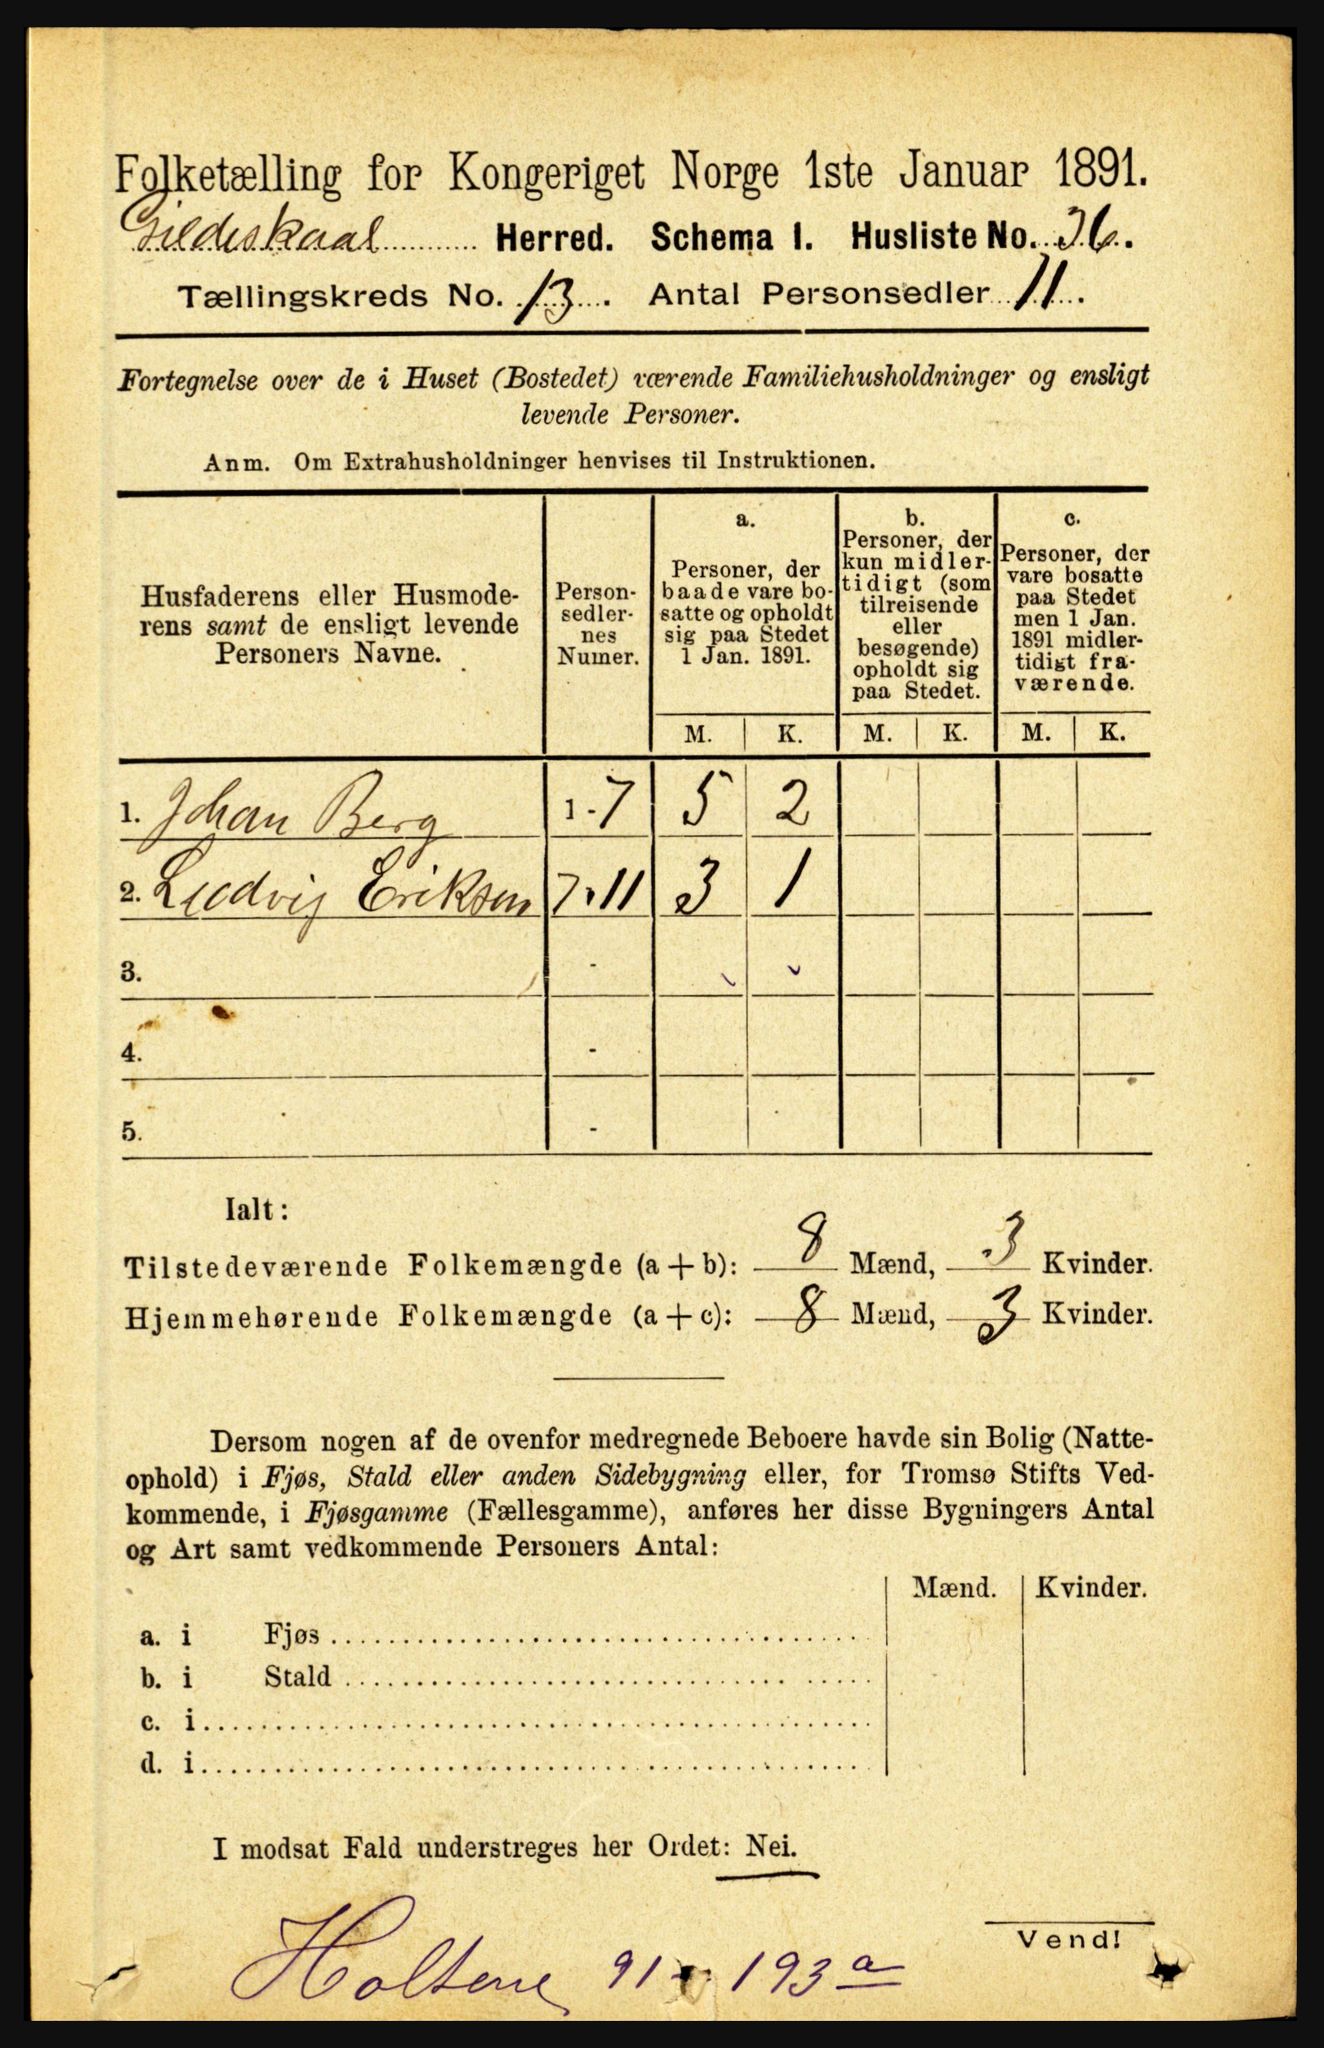 Folketælling for Kongeriget Norge 1ste Januar 1891.
Gildeskaal Herred. Schema I. Husliste No. 36.
Tællingskreds No. 13. Antal Personsedler 11.
Fortegnelse over de i Huset (Bostedet) værende Familiehusholdninger og ensligt
levende Personer.
Anm. Om Extrahusholdninger henvises til Instruktionen.
Husfaderens eller Husmode-
rens samt de ensligt levende
Personers Navne.
Person-
sedler-
nes
Numer.
a.
Personer, der
baade vare bo-
satte og opholdt
sig paa Stedet
1 Jan. 1891.
b.
Personer, der
kun midler-
tidigt (som
tilreisende
eller
besøgende)
opholdt sig
paa Stedet.
c.
Personer, der
vare bosatte
paa Stedet
men 1 Jan.
1891 midler-
tidigt fra-
værende.
M. K. M. K. M. K.
1. Johan Berg 1-7 5 2
2. Ludvig Eriksen 7-11 3 1
3. -
4. -
5. -
Ialt:
Tilstedeværende Folkemængde (a+b): 8 Mænd, 3 Kvinder.
Hjemmehørende Folkemængde (a+c): 8 Mænd, 3 Kvinder.
Dersom nogen af de ovenfor medregnede Beboere havde sin Bolig (Natte-
ophold) i Fjøs, Stald eller anden Sidebygning eller, for Tromsø Stifts Ved-
kommende, i Fjøsgamme (Fællesgamme), anføres her disse Bygningers Antal
og Art samt vedkommende Personers Antal:
Mænd. Kvinder.
a. i Fjøs
b. i Stald
c. i
d. i
I modsat Fald understreges her Ordet: Nei.
Vend!
Holtene 91 - 193 a